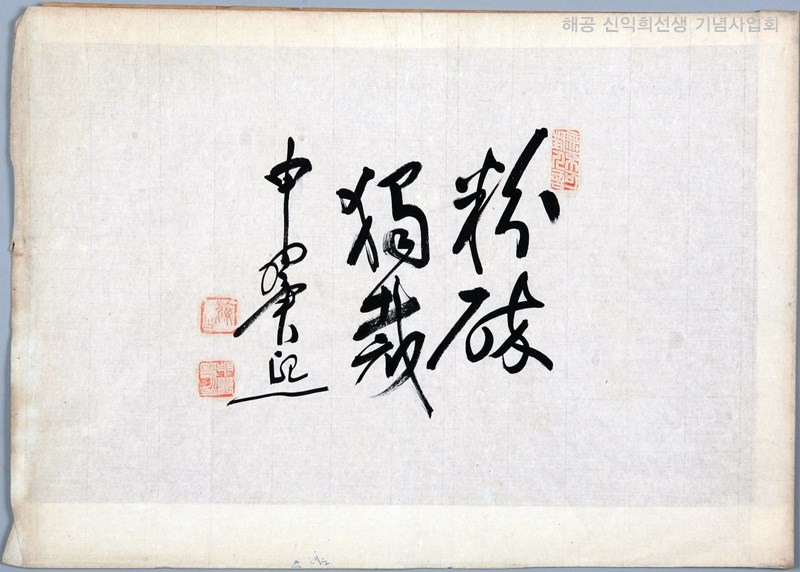 해공 신익희선생 기념사업회
粉碎
獨裁
申翼熙